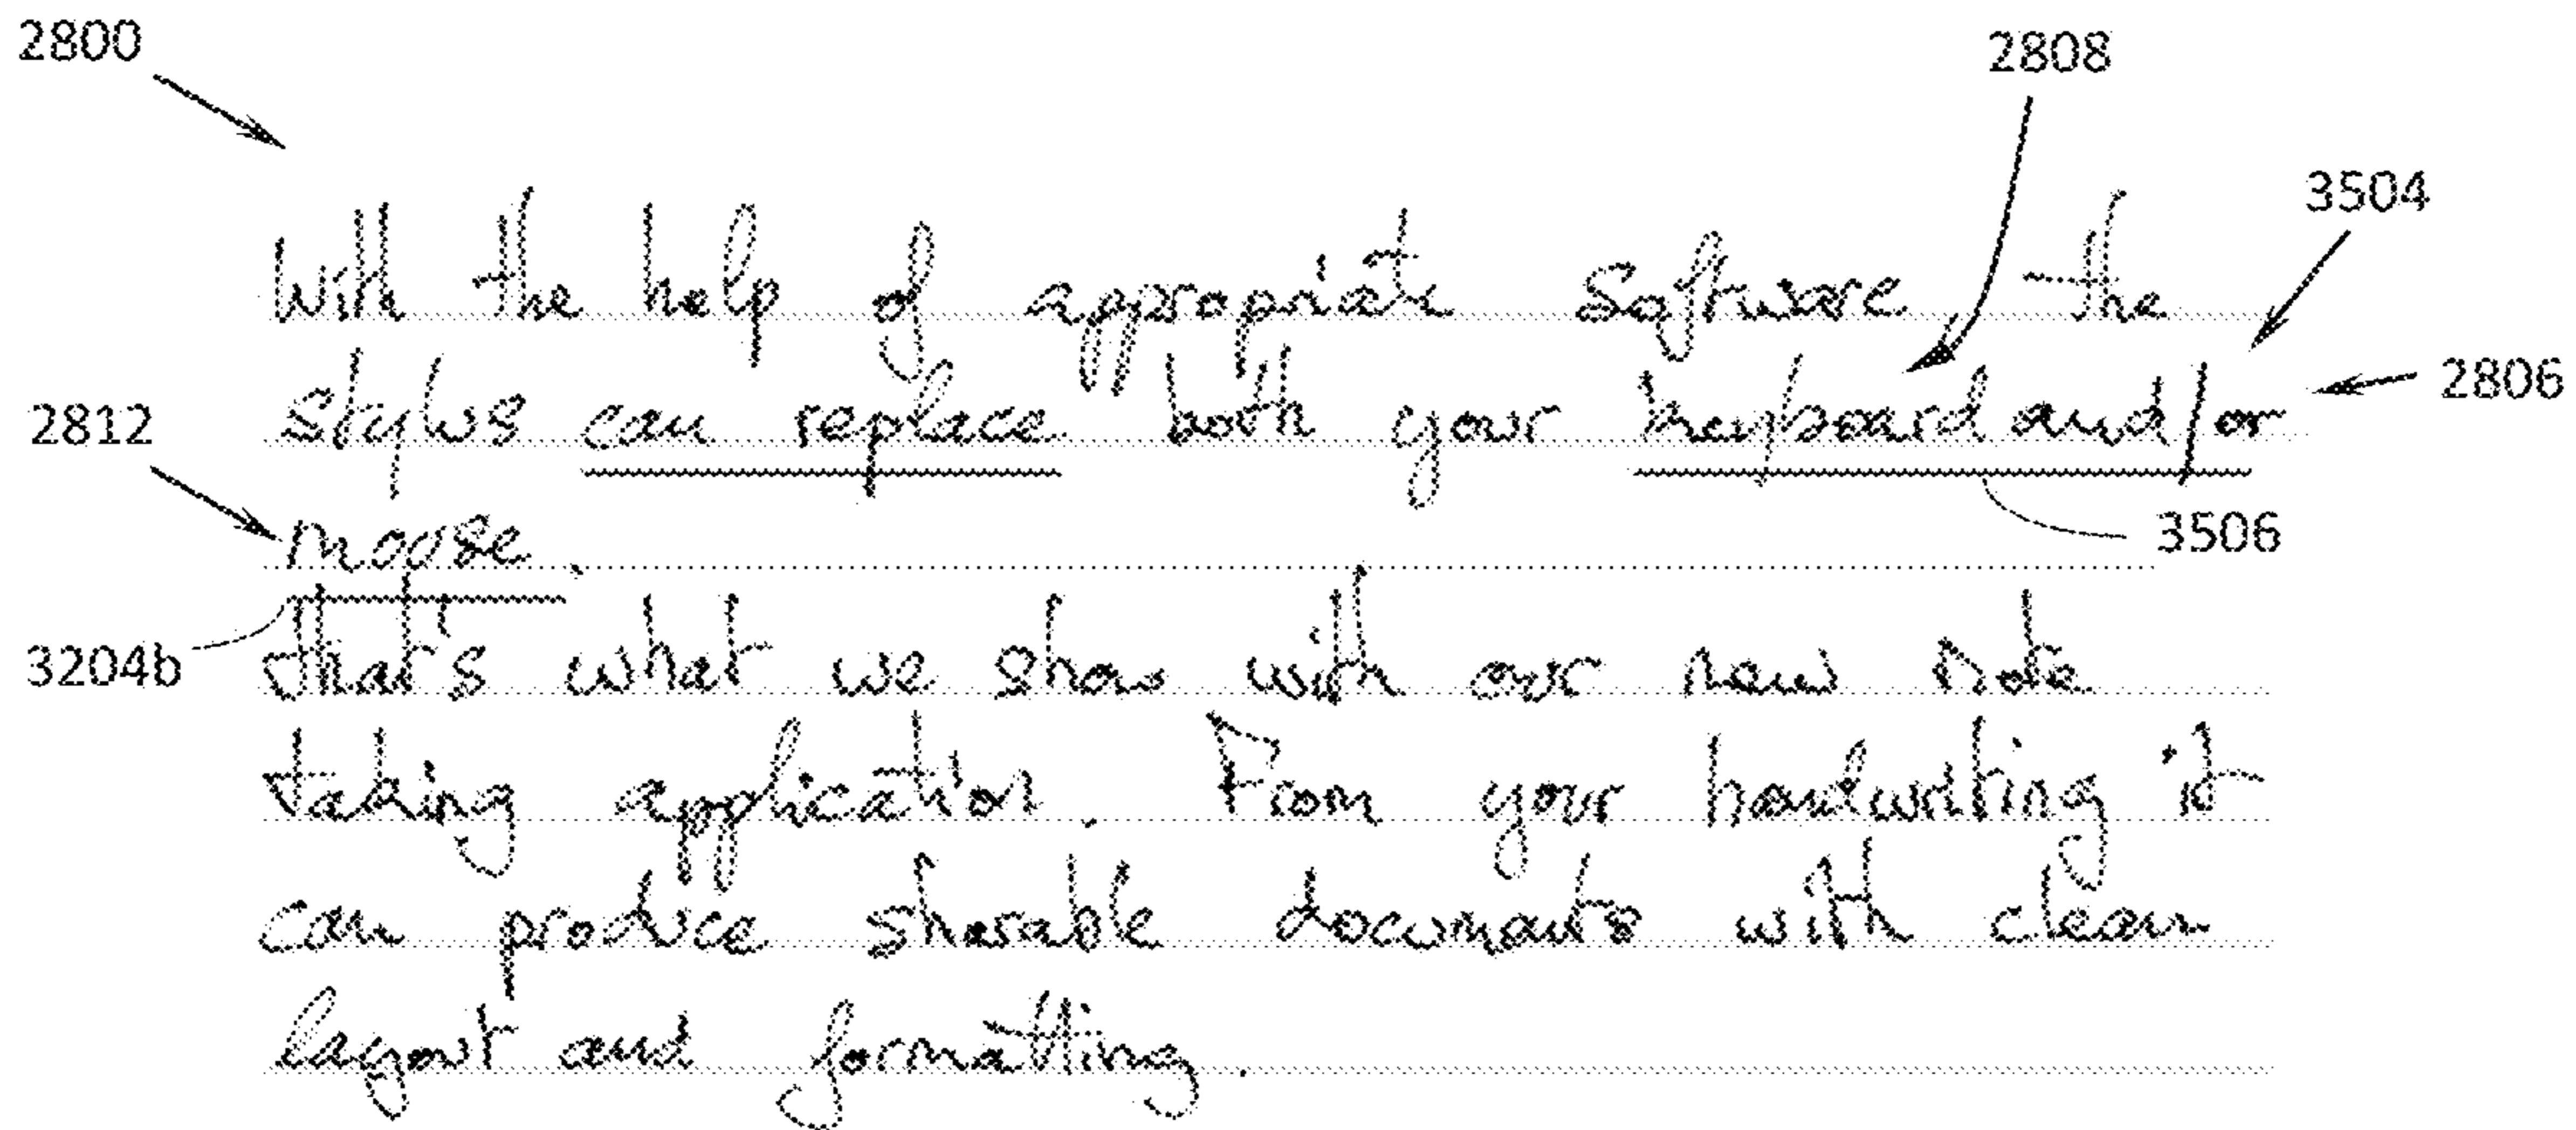 2800
2808
3504
With the help of appropriate software the
stylus can replace both your keyboard and/or
2806
2812
moose.
3506
3204b
that's what we show with our new note
taking application. From your handwriting it
can produce sharable documents with clean
layout and formatting.